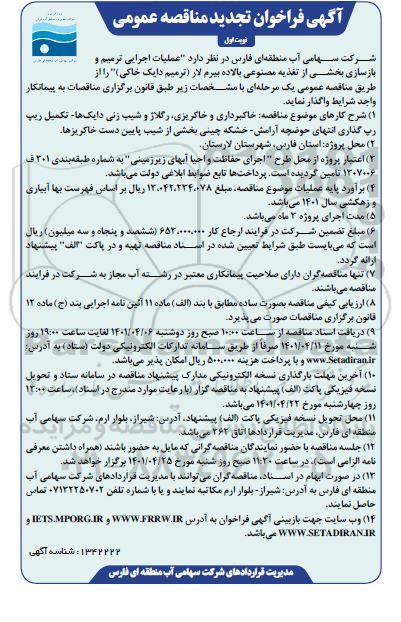 آگهی فراخوان تجدید مناقصه عمومی
نوبت اول
شرکت سهامی آب منطقه‌ای فارس در نظر دارد "عملیات اجرایی ترمیم و
بازسازی بخشی از تغذیه مصنوعی بالاده بیرم لار (ترمیم دایک خاکی)" را از
طریق مناقصه عمومی یک مرحله‌ای با مشخصات زیر طبق قانون برگزاری مناقصات به پیمانکار
واجد شرایط واگذار نماید.
۱) شرح کارهای موضوع مناقصه: خاکبرداری و خاکریزی، رگلاژ و شیب زنی دایک‌ها- تکمیل ریپ
رپ گذاری انتهای حوضچه آرامش- خشکه چینی بخشی از شیب پایین دست خاکریزها.
۲) محل پروژه: استان فارس، شهرستان لارستان.
۳) اعتبار پروژه از محل طرح " اجرای حفاظت و احیا آبهای زیرزمینی" به شماره طبقه‌بندی ۳۰۱ ف
۱۳۰۷۰۰۶ تامین گردیده است. پرداخت‌ها تابع ضوابط ابلاغی دولت می‌باشد.
۴) برآورد پایه عملیات موضوع مناقصه، مبلغ ۱۳،۰۴۲،۲۳۴،۰۷۸ ریال بر اساس فهرست بها آبیاری
و زهکشی سال ۱۴۰۱ می‌باشد.
۵) مدت اجرای پروژه ۲ ماه می‌باشد.
۶) مبلغ تضمین شرکت در فرایند ارجاع کار ۶۵۳،۰۰۰،۰۰۰ (ششصد و پنجاه و سه میلیون) ریال
است که می‌بایست طبق شرایط تعیین شده در اسناد مناقصه تهیه و در پاکت "الف" پیشنهاد
ارائه گردد.
۷) تنها مناقصه‌گران دارای صلاحیت پیمانکاری معتبر در رشته آب مجاز به شرکت در فرایند
مناقصه می‌باشند.
۸) ارزیابی کیفی مناقصه بصورت ساده مطابق با بند (الف) ماده ۱۱ آئین نامه اجرایی بند (ج) ماده ۱۲
قانون برگزاری مناقصات صورت می‌پذیرد.
۹) دریافت اسناد مناقصه از ساعت ۱۰:۰۰ صبح روز دوشنبه ۱۴۰۱/۰۴/۰۶ لغایت ساعت ۱۹:۰۰ روز
شنبه مورخ ۱۴۰۱/۰۴/۱۱ صرفاً از طریق سامانه تدارکات الکترونیکی دولت (ستاد) به آدرس:
www.Setadiran.ir و با پرداخت هزینه ۵۰۰،۰۰۰ ریال امکان پذیر می‌باشد.
۱۰) آخرین مهلت بارگذاری نسخه الکترونیکی مدارک پیشنهاد مناقصه در سامانه ستاد و تحویل
نسخه فیزیکی پاکت (الف) پیشنهاد به مناقصه گزار (با رعایت موارد مندرج در اسناد)، ساعت ۱۳:۰۰
روز چهارشنبه مورخ ۱۴۰۱/۰۴/۲۲ می‌باشد.
۱۱) محل تحویل نسخه فیزیکی پاکت (الف) پیشنهاد، آدرس: شیراز، بلوار ارم، شرکت سهامی آب
منطقه ای فارس، مدیریت قراردادها اتاق ۳۶۲ می‌باشد.
۱۲) جلسه مناقصه با حضور نمایندگان مناقصه گرانی که مایل به حضور باشند (همراه داشتن معرفی
نامه الزامی است)، در ساعت ۱۱:۳۰ صبح روز شنبه مورخ ۱۴۰۱/۰۴/۲۵ برگزار خواهد شد.
۱۳) در صورت ابهام در اسناد، مناقصه‌گران می‌توانند با مدیریت قراردادهای شرکت سهامی آب
منطقه ای فارس به آدرس: شیراز- بلوار ارم مکاتبه نمایند و یا با شماره تلفن ۰۷۱۳۲۲۵۰۷۰۲ تماس
حاصل نمایند.
۱۴) وب سایت جهت بازبینی آگهی فراخوان به آدرس WWW.FRRW.IR و IETS.MPORG.IR و
WWW.SETADIRAN.IR می‌باشد.
۱۳۴۲۲۲۲ : شناسه آگهی
مدیریت قراردادهای شرکت سهامی آب منطقه ای فارس